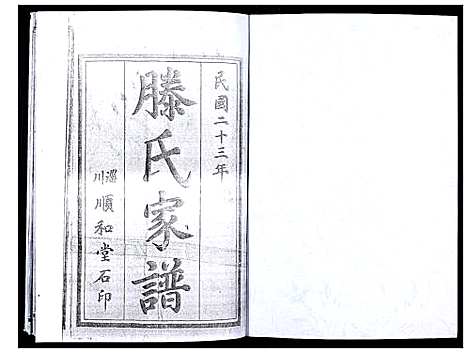 民國二十三年
滕氏家譜
淄川順和堂石印